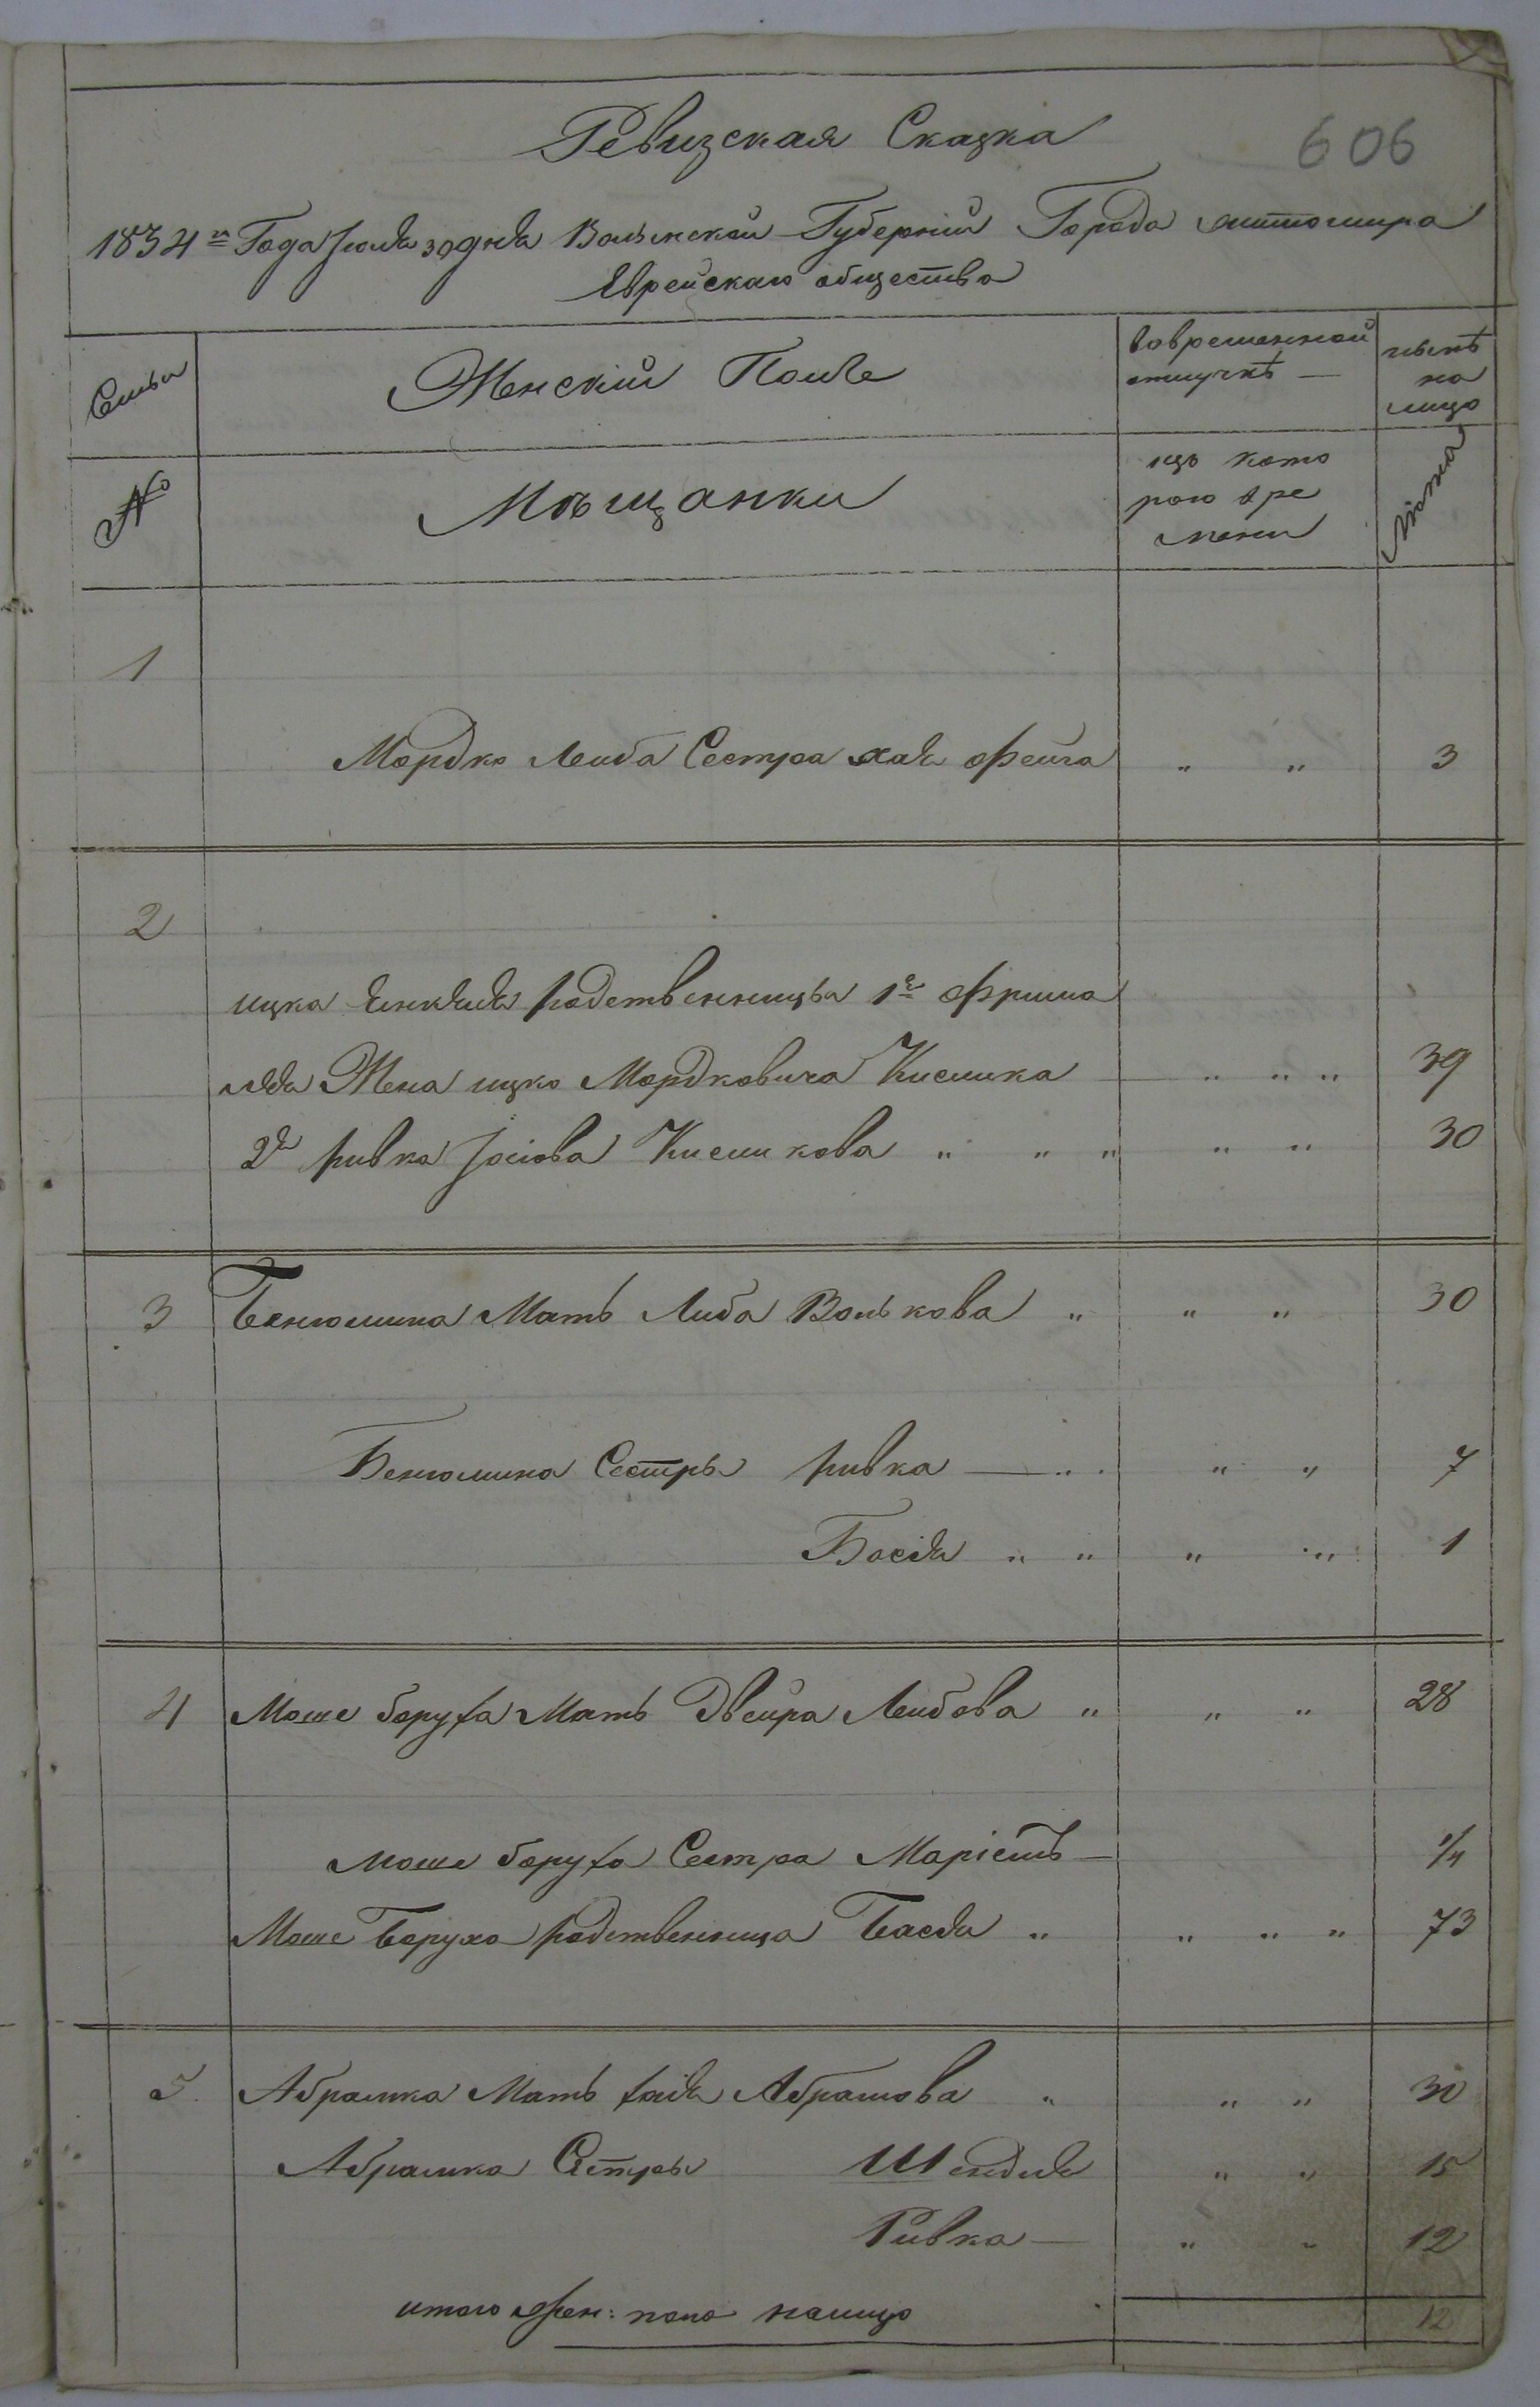 Ревизская Сказка
606
1834го Года Июля 30 дня Волынской Губернии Города Житомира
Еврейскаго общества
Семьи
Женский Полъ
Во временной отлучкѣ —
нынѣ на лицо
№
Мѣщанки
изъ кото рого вре мени
лѣта
1
Мордко Лейба Сестра Хая Фейга " " 3
2
ицка Янкеля родственницы 1я Фрима
Лея Жена ицко Мордковича Кислика " " " 39
2я ривка Иосіова Кисликова " " " " " 30
3 Бенюмина Мать Либа Волькова " " " 30
Бенюмина Сестры ривка — " " " 7
Бася " " " " 1
4 Моше боруха Мать Двейра Лейбова " " " 28
моше боруха Сестра Маріемъ — 1/4
Моше Боруха родственница Бася " " " " 73
5. Абрамка Мать хая Абрамова " " " 30
Абрамка Сестры Шендля " " 15
Ривка — " " 12
итого жен: пола налицо 12